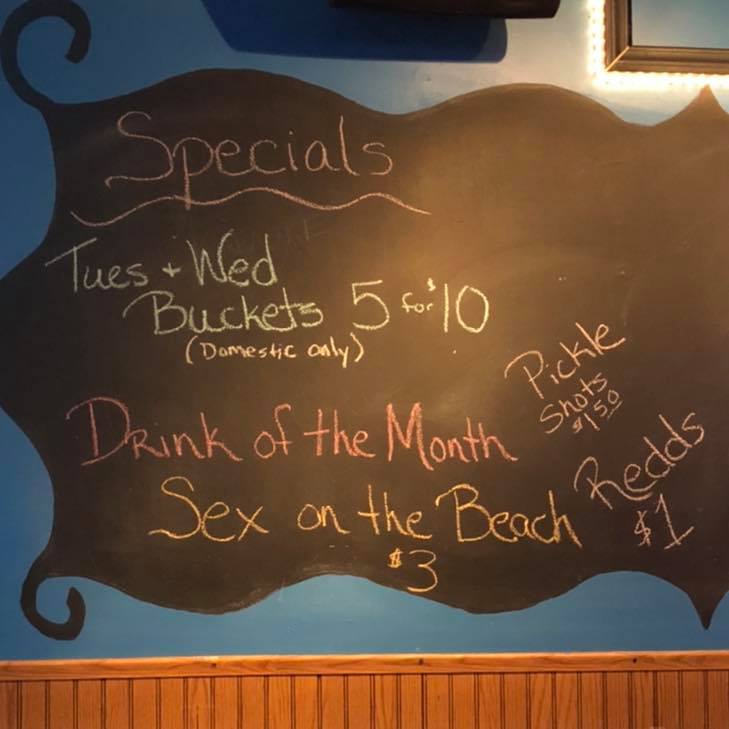 Specials
Tues + Wed
Buckets 5 for $10
(Domestic only)
Pickle
Shots
$1.50
Drink of the Month
Sex on the Beach
$3
Redds
$1